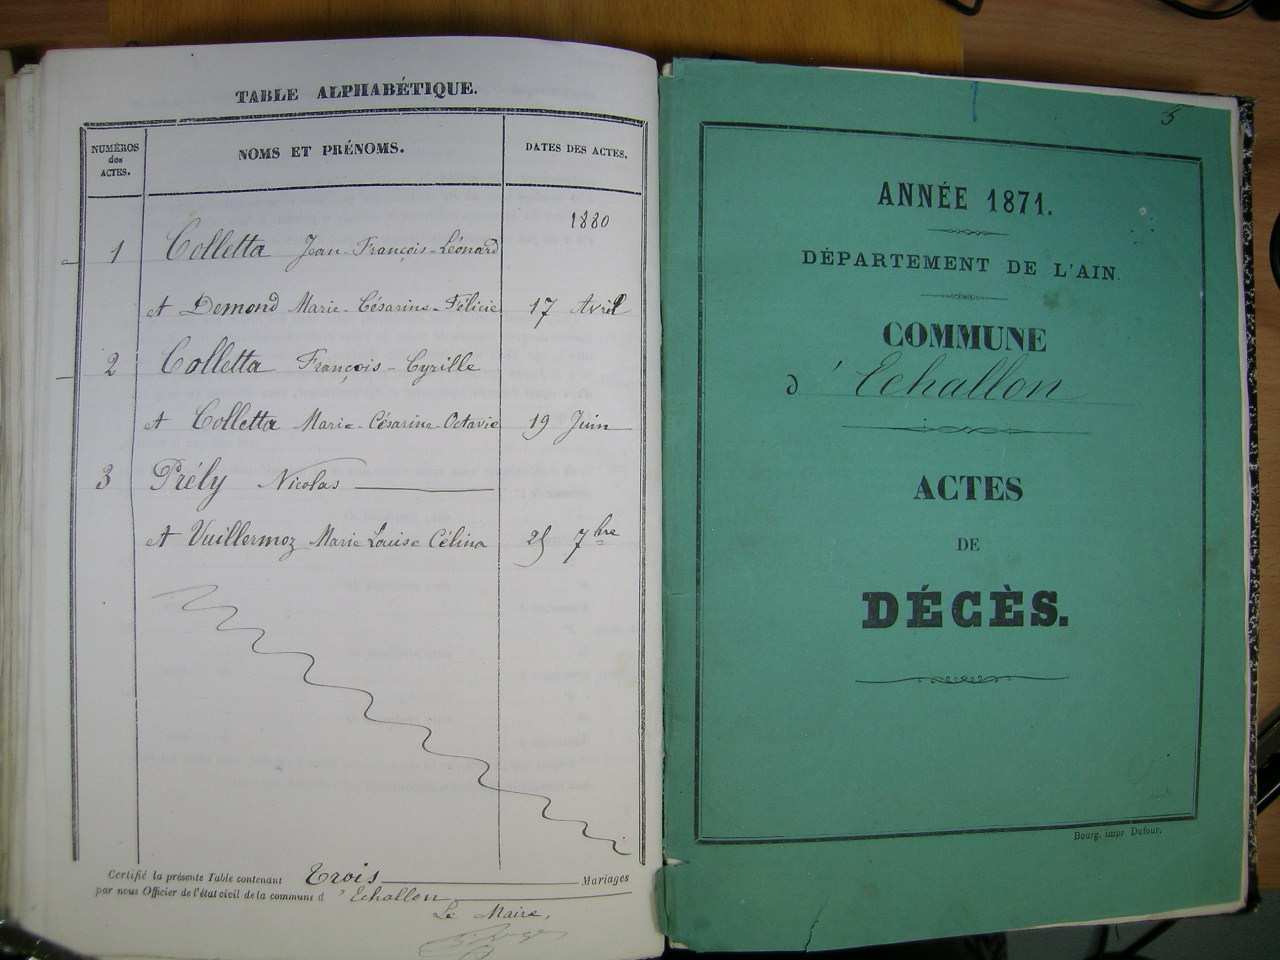 TABLE ALPHABÉTIQUE.
NUMÉROS des ACTES.
NOMS ET PRÉNOMS.
DATES DES ACTES.
1880
1 Colletta Jean-François-Léonard
et Demond Marie-Césarine-Félicie 17 Avril
2 Colletta François-Cyrille
et Colletta Marie-Césarine-Octavie 19 Juin
3 Prély Nicolas
et Vuillermoz Marie Louise Célina 25 7bre
Certifié la présente Table contenant Trois Mariages
par nous Officier de l'état civil de la commune d'Echallon
Le Maire,
5
ANNÉE 1871.
DÉPARTEMENT DE L'AIN.
COMMUNE
d'Echallon
ACTES
DE
DÉCÈS.
Bourg, impr Dufour.